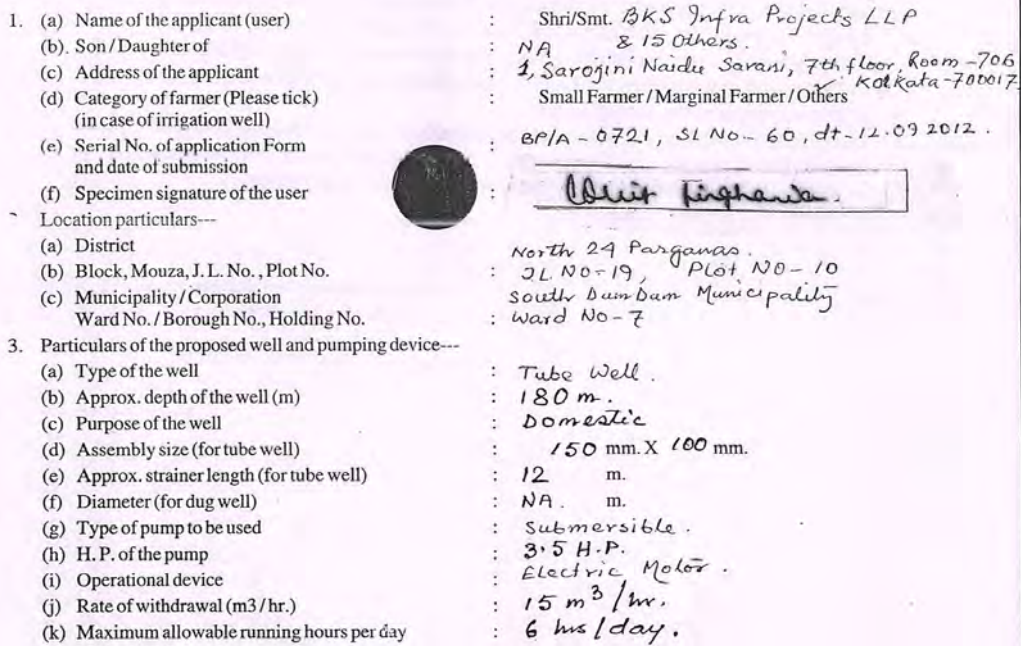 1. (a) Name of the applicant (user) : Shri/Smt. BKS Infra Projects LLP
& 15 Others.
(b). Son/Daughter of : NA
(c) Address of the applicant : 1, Sarojini Naidu Sarani, 7th floor, Room-706
Kolkata-700017
(d) Category of farmer (Please tick) : Small Farmer / Marginal Farmer / Others ✓
(in case of irrigation well)
(e) Serial No. of application Form : BP/A-0721, SL No-60, dt-12.09 2012.
and date of submission
(f) Specimen signature of the user :
Location particulars---
(a) District North 24 Parganas.
(b) Block, Mouza, J. L. No. , Plot No. : JL NO-19, Plot NO-10
(c) Municipality / Corporation South DumDum Municipality
Ward No. / Borough No., Holding No. : Ward No-7
3. Particulars of the proposed well and pumping device---
(a) Type of the well : Tube Well.
(b) Approx. depth of the well (m) : 180 m.
(c) Purpose of the well : Domestic
(d) Assembly size (for tube well) : 150 mm. X 100 mm.
(e) Approx. strainer length (for tube well) : 12 m.
(f) Diameter (for dug well) : NA. m.
(g) Type of pump to be used : Submersible.
(h) H. P. of the pump : 3.5 H.P.
(i) Operational device : Electric Motor.
(j) Rate of withdrawal (m3 / hr.) : 15 m³/hr.
(k) Maximum allowable running hours per day : 6 hrs/day.